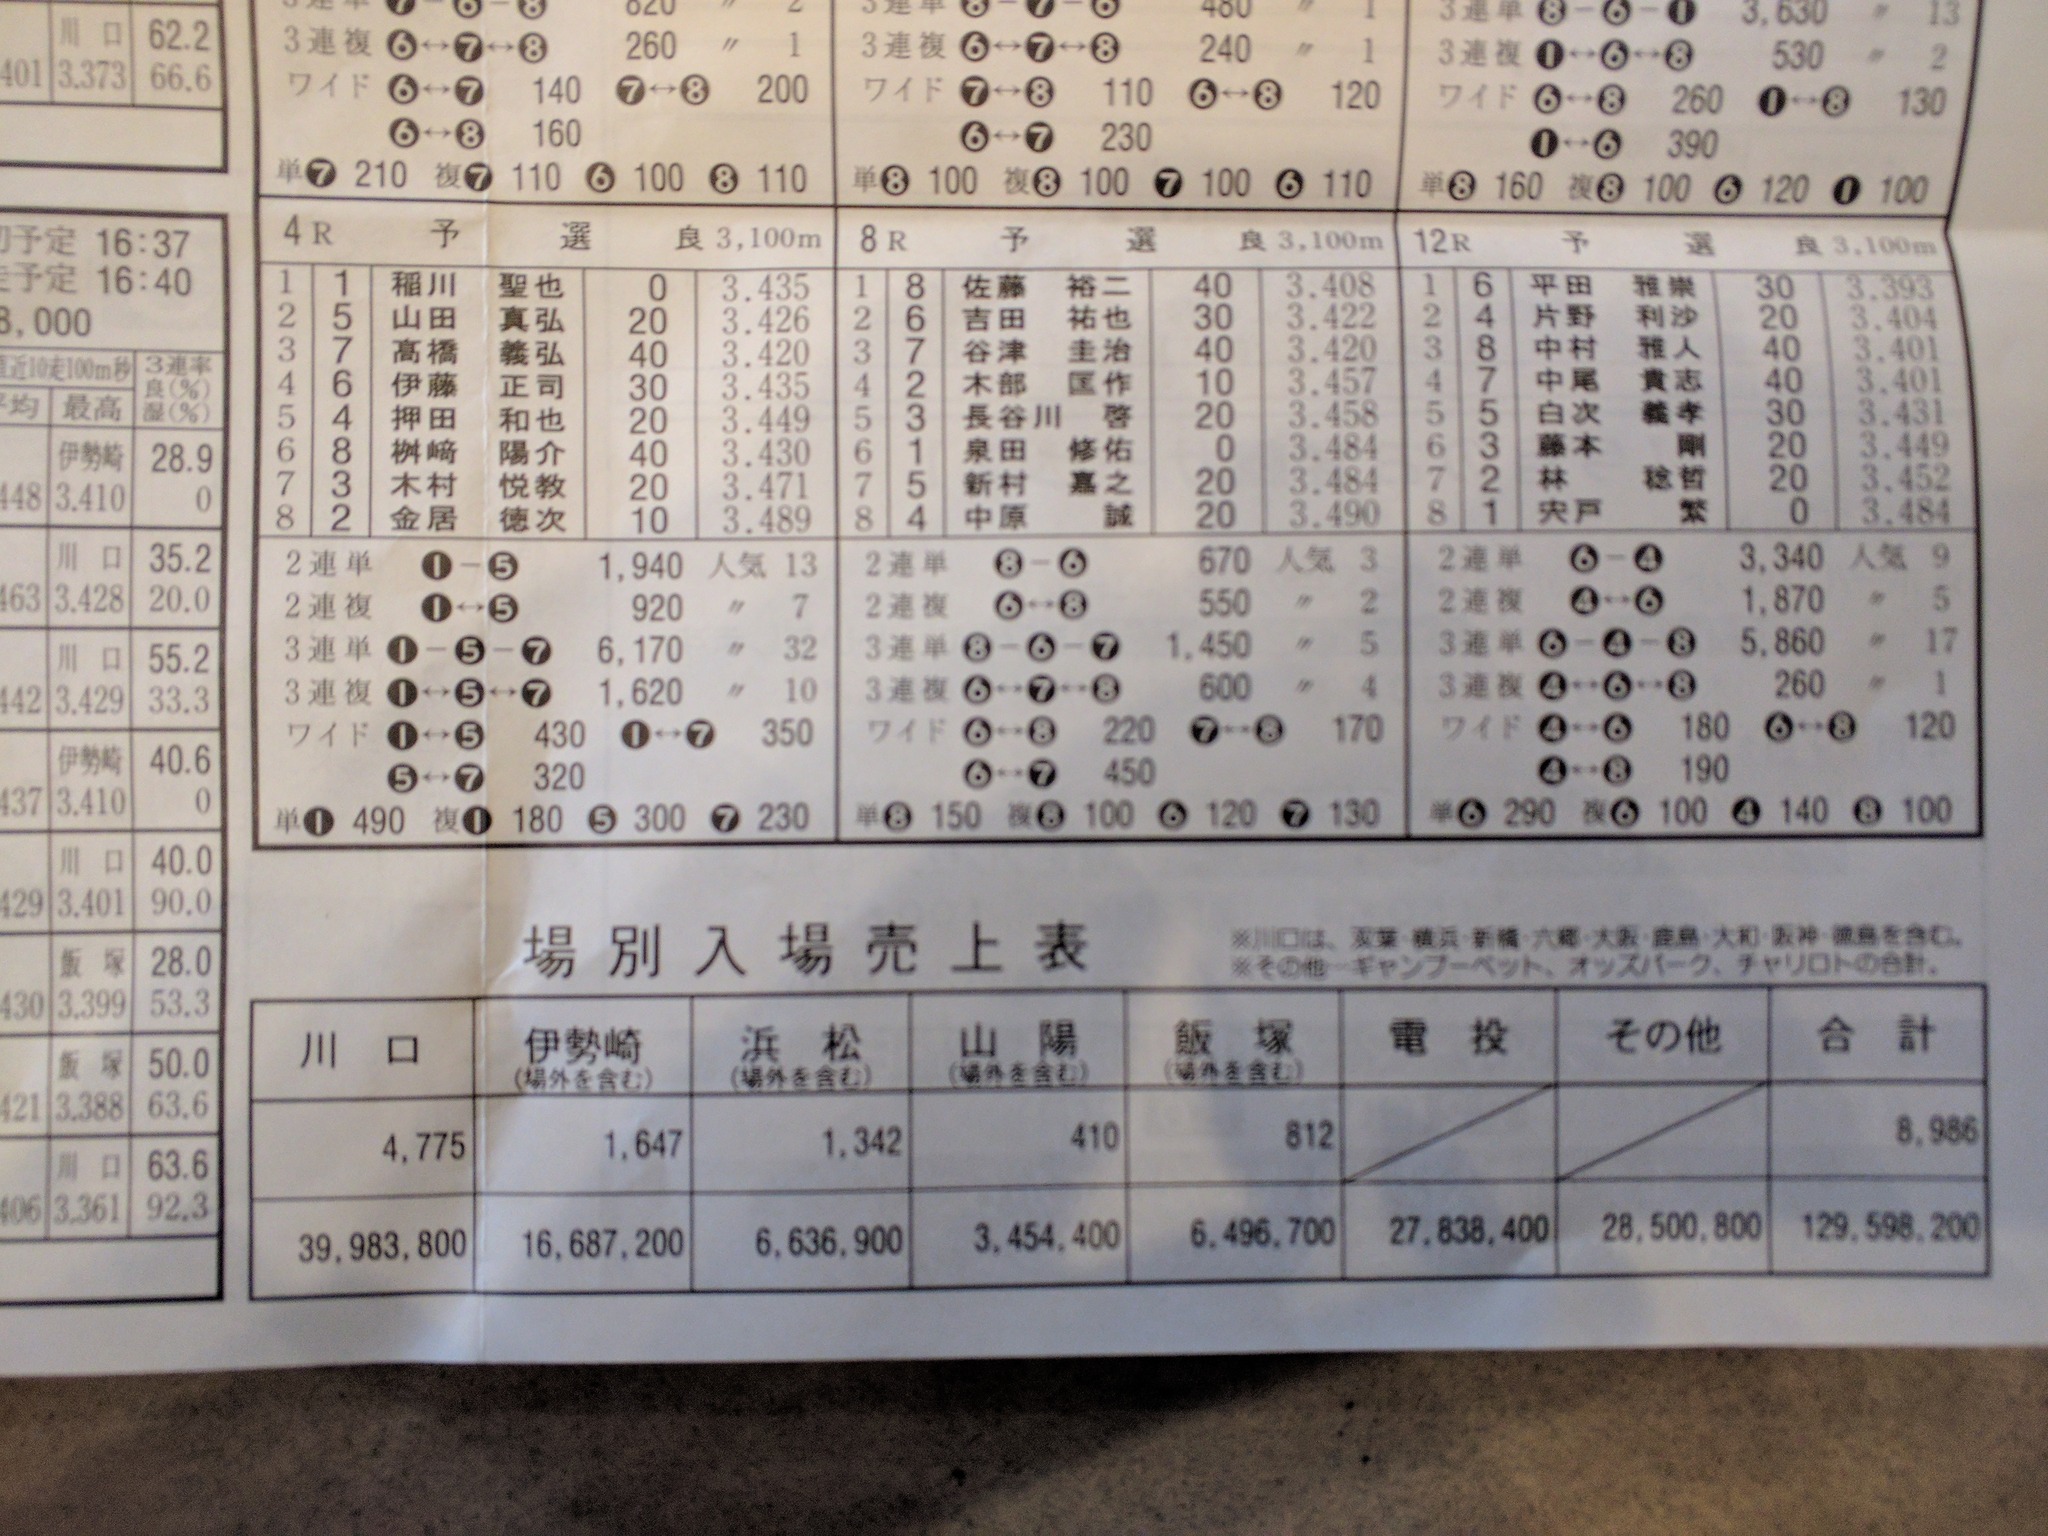 川口 62.2
401 3.373 66.6
予定 16:37
予定 16:40
8,000
近10走100m秒 3連率
良(%)
平均 最高 湿(%)
伊勢崎 28.9
448 3.410 0
川口 35.2
463 3.428 20.0
川口 55.2
442 3.429 33.3
伊勢崎 40.6
437 3.410 0
川口 40.0
429 3.401 90.0
飯塚 28.0
430 3.399 53.3
飯塚 50.0
421 3.388 63.6
川口 63.6
406 3.361 92.3
3連単 ❼−❻−❽ 820 〃 2
3連複 ❻↔❼↔❽ 260 〃 1
ワイド ❻↔❼ 140 ❼↔❽ 200
❻↔❽ 160
単❼ 210 複❼ 110 ❻ 100 ❽ 110
4R 予選 良 3,100m
1 1 稲川 聖也 0 3.435
2 5 山田 真弘 20 3.426
3 7 高橋 義弘 40 3.420
4 6 伊藤 正司 30 3.435
5 4 押田 和也 20 3.449
6 8 桝﨑 陽介 40 3.430
7 3 木村 悦教 20 3.471
8 2 金居 徳次 10 3.489
2連単 ❶−❺ 1,940 人気 13
2連複 ❶↔❺ 920 〃 7
3連単 ❶−❺−❼ 6,170 〃 32
3連複 ❶↔❺↔❼ 1,620 〃 10
ワイド ❶↔❺ 430 ❶↔❼ 350
❺↔❼ 320
単❶ 490 複❶ 180 ❺ 300 ❼ 230
3連単 ❽−❼−❻ 480 〃 1
3連複 ❻↔❼↔❽ 240 〃 1
ワイド ❼↔❽ 110 ❻↔❽ 120
❻↔❼ 230
単❽ 100 複❽ 100 ❼ 100 ❻ 110
8R 予選 良 3,100m
1 8 佐藤 裕二 40 3.408
2 6 吉田 祐也 30 3.422
3 7 谷津 圭治 40 3.420
4 2 木部 匡作 10 3.457
5 3 長谷川 啓 20 3.458
6 1 泉田 修佑 0 3.484
7 5 新村 嘉之 20 3.484
8 4 中原 誠 20 3.490
2連単 ❽−❻ 670 人気 3
2連複 ❻↔❽ 550 〃 2
3連単 ❽−❻−❼ 1,450 〃 5
3連複 ❻↔❼↔❽ 600 〃 4
ワイド ❻↔❽ 220 ❼↔❽ 170
❻↔❼ 450
単❽ 150 複❽ 100 ❻ 120 ❼ 130
3連単 ❽−❻−❶ 3,630 〃 13
3連複 ❶↔❻↔❽ 530 〃 2
ワイド ❻↔❽ 260 ❶↔❽ 130
❶↔❻ 390
単❽ 160 複❽ 100 ❻ 120 ❶ 100
12R 予選 良 3,100m
1 6 平田 雅崇 30 3.393
2 4 片野 利沙 20 3.404
3 8 中村 雅人 40 3.401
4 7 中尾 貴志 40 3.401
5 5 白次 義孝 30 3.431
6 3 藤本 剛 20 3.449
7 2 林 稔哲 20 3.452
8 1 宍戸 繁 0 3.484
2連単 ❻−❹ 3,340 人気 9
2連複 ❹↔❻ 1,870 〃 5
3連単 ❻−❹−❽ 5,860 〃 17
3連複 ❹↔❻↔❽ 260 〃 1
ワイド ❹↔❻ 180 ❻↔❽ 120
❹↔❽ 190
単❻ 290 複❻ 100 ❹ 140 ❽ 100
場別入場売上表
※川口は、双葉・横浜・新橋・六郷・大阪・鹿島・大和・阪神・徳島を含む。
※その他…ギャンブーベット、オッズパーク、チャリロトの合計。
川口 伊勢崎(場外を含む) 浜松(場外を含む) 山陽(場外を含む) 飯塚(場外を含む) 電投 その他 合計
4,775 1,647 1,342 410 812 8,986
39,983,800 16,687,200 6,636,900 3,454,400 6,496,700 27,838,400 28,500,800 129,598,200